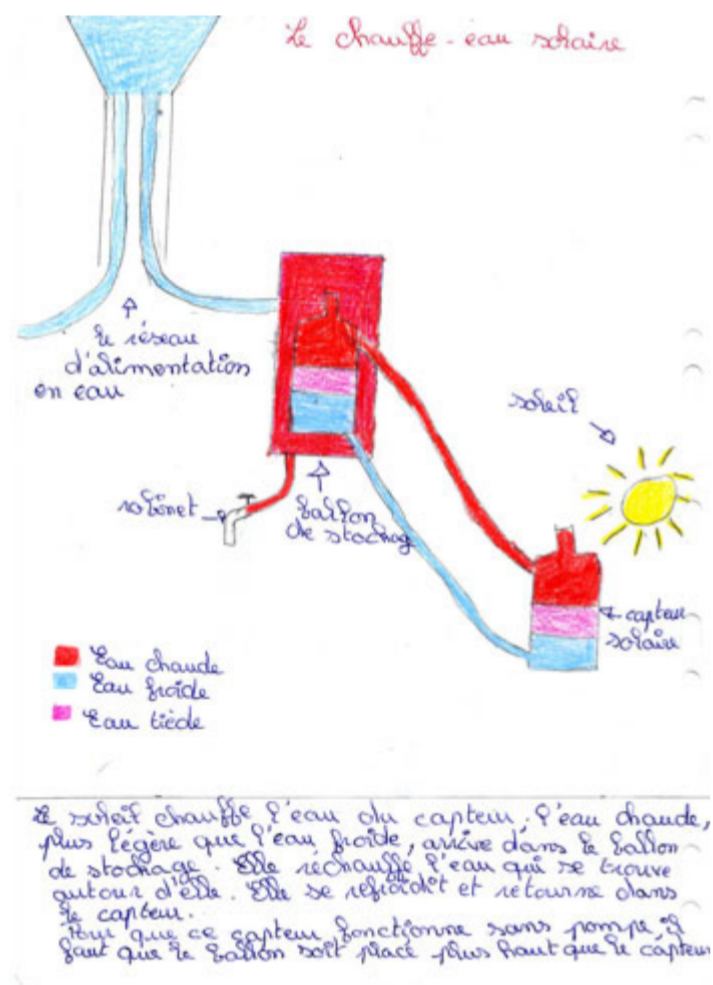 Le chauffe-eau solaire
le réseau
d'alimentation
en eau
soleil
robinet
ballon
de stockag
capteur
solaire
Eau chaude
Eau froide
Eau tiède
Le soleil chauffe l'eau du capteur, l'eau chaude,
plus légère que l'eau froide, arrive dans le ballon
de stockage. Elle réchauffe l'eau qui se trouve
autour d'elle. Elle se refroidit et retourne dans
le capteur.
Pour que ce capteur fonctionne sans pompe, il
faut que le ballon soit placé plus haut que le capteur